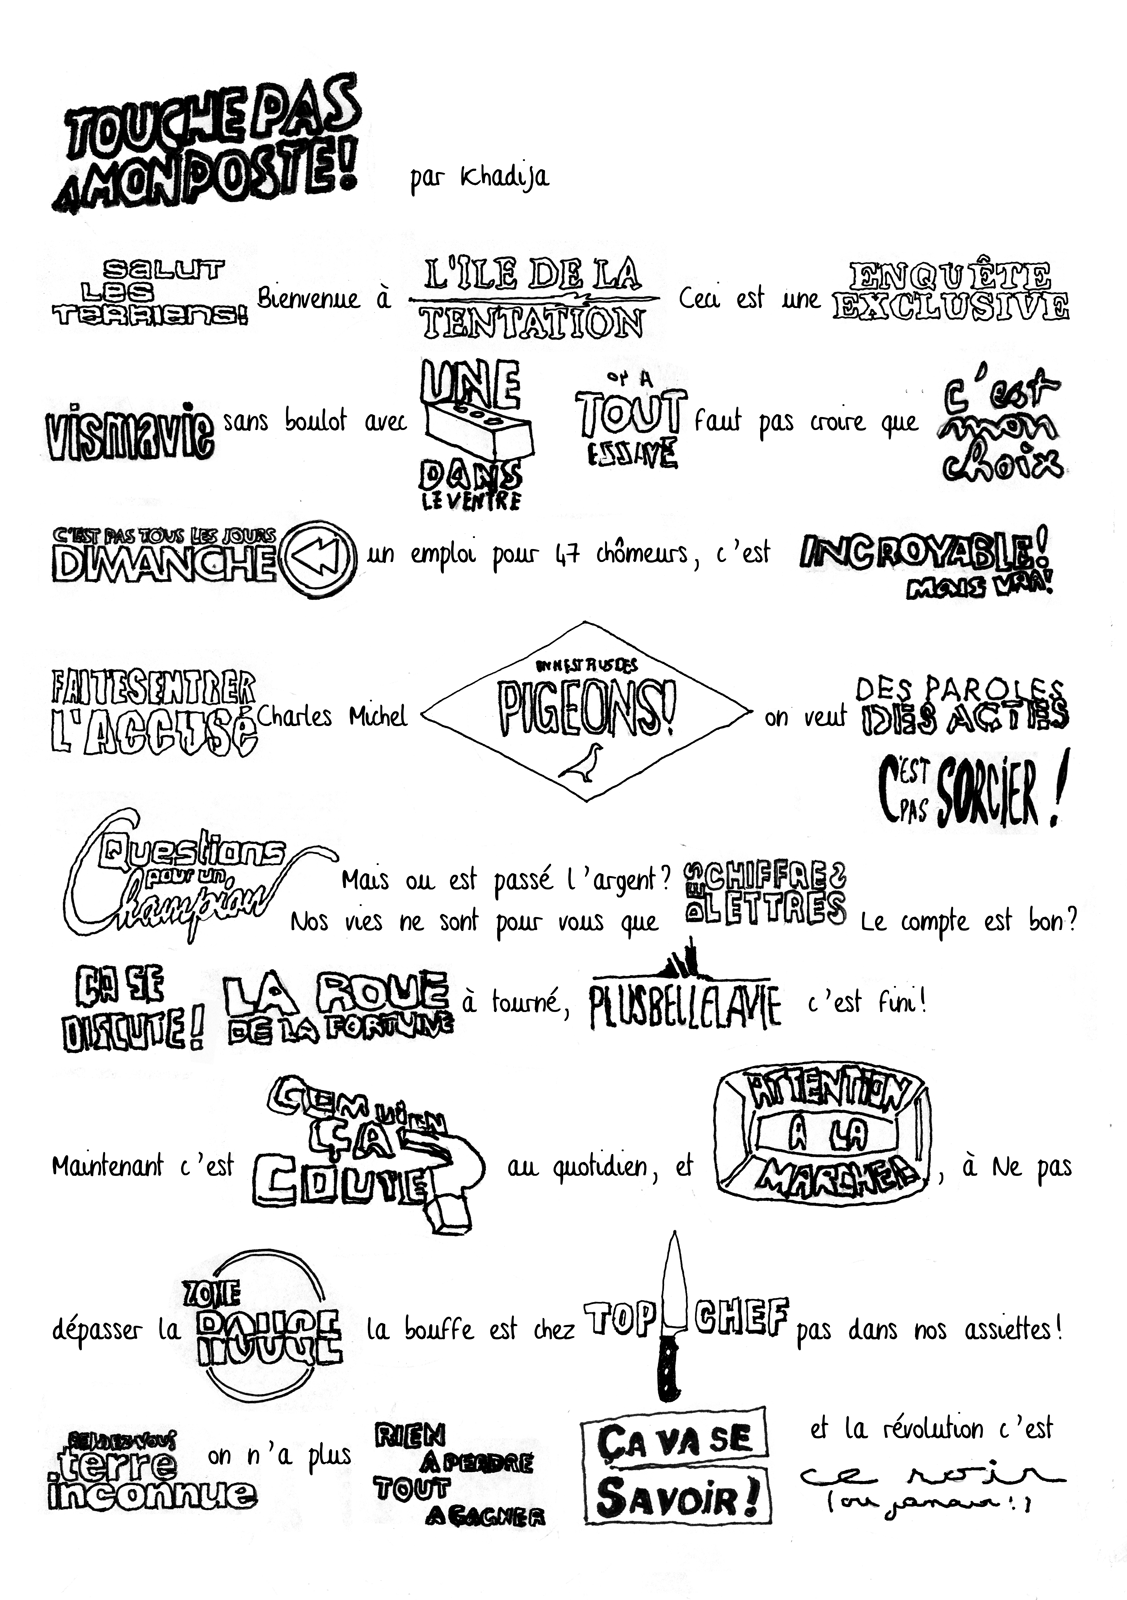 TOUCHE PAS
A MON POSTE!
par Khadija
SALUT
LES
TERRIENS!
Bienvenue à
L'ÎLE DE LA
TENTATION
Ceci est une
ENQUÊTE
EXCLUSIVE
vismavie
sans boulot avec
UNE
DANS
LE VENTRE
ON A
TOUT
ESSAYÉ
faut pas croire que
c'est
mon
choix
C'EST PAS TOUS LES JOURS
DIMANCHE
un emploi pour 47 chômeurs, c'est
INCROYABLE!
MAIS VRAI
FAITES ENTRER
L'ACCUSÉ
Charles Michel
ON N'EST PLUS DES
PIGEONS!
on veut
DES PAROLES
DES ACTES
C'EST
PAS SORCIER!
Questions
pour un
Champion
Mais ou est passé l'argent?
Nos vies ne sont pour vous que
DES CHIFFRES
LETTRES
Le compte est bon?
ÇA SE
DISCUTE!
LA ROUE
DE LA FORTUNE
à tourné,
PLUS BELLE LA VIE
c'est fini!
Maintenant c'est
COMBIEN
ÇA
COUTE?
au quotidien, et
ATTENTION
À LA
MARCHE
, à Ne pas
dépasser la
ZONE
ROUGE
la bouffe est chez
TOP CHEF
pas dans nos assiettes!
RENDEZ-VOUS
terre
inconnue
on n'a plus
RIEN
A PERDRE
TOUT
A GAGNER
ÇA VA SE
SAVOIR!
et la révolution c'est
ce soir
(ou jamais!)